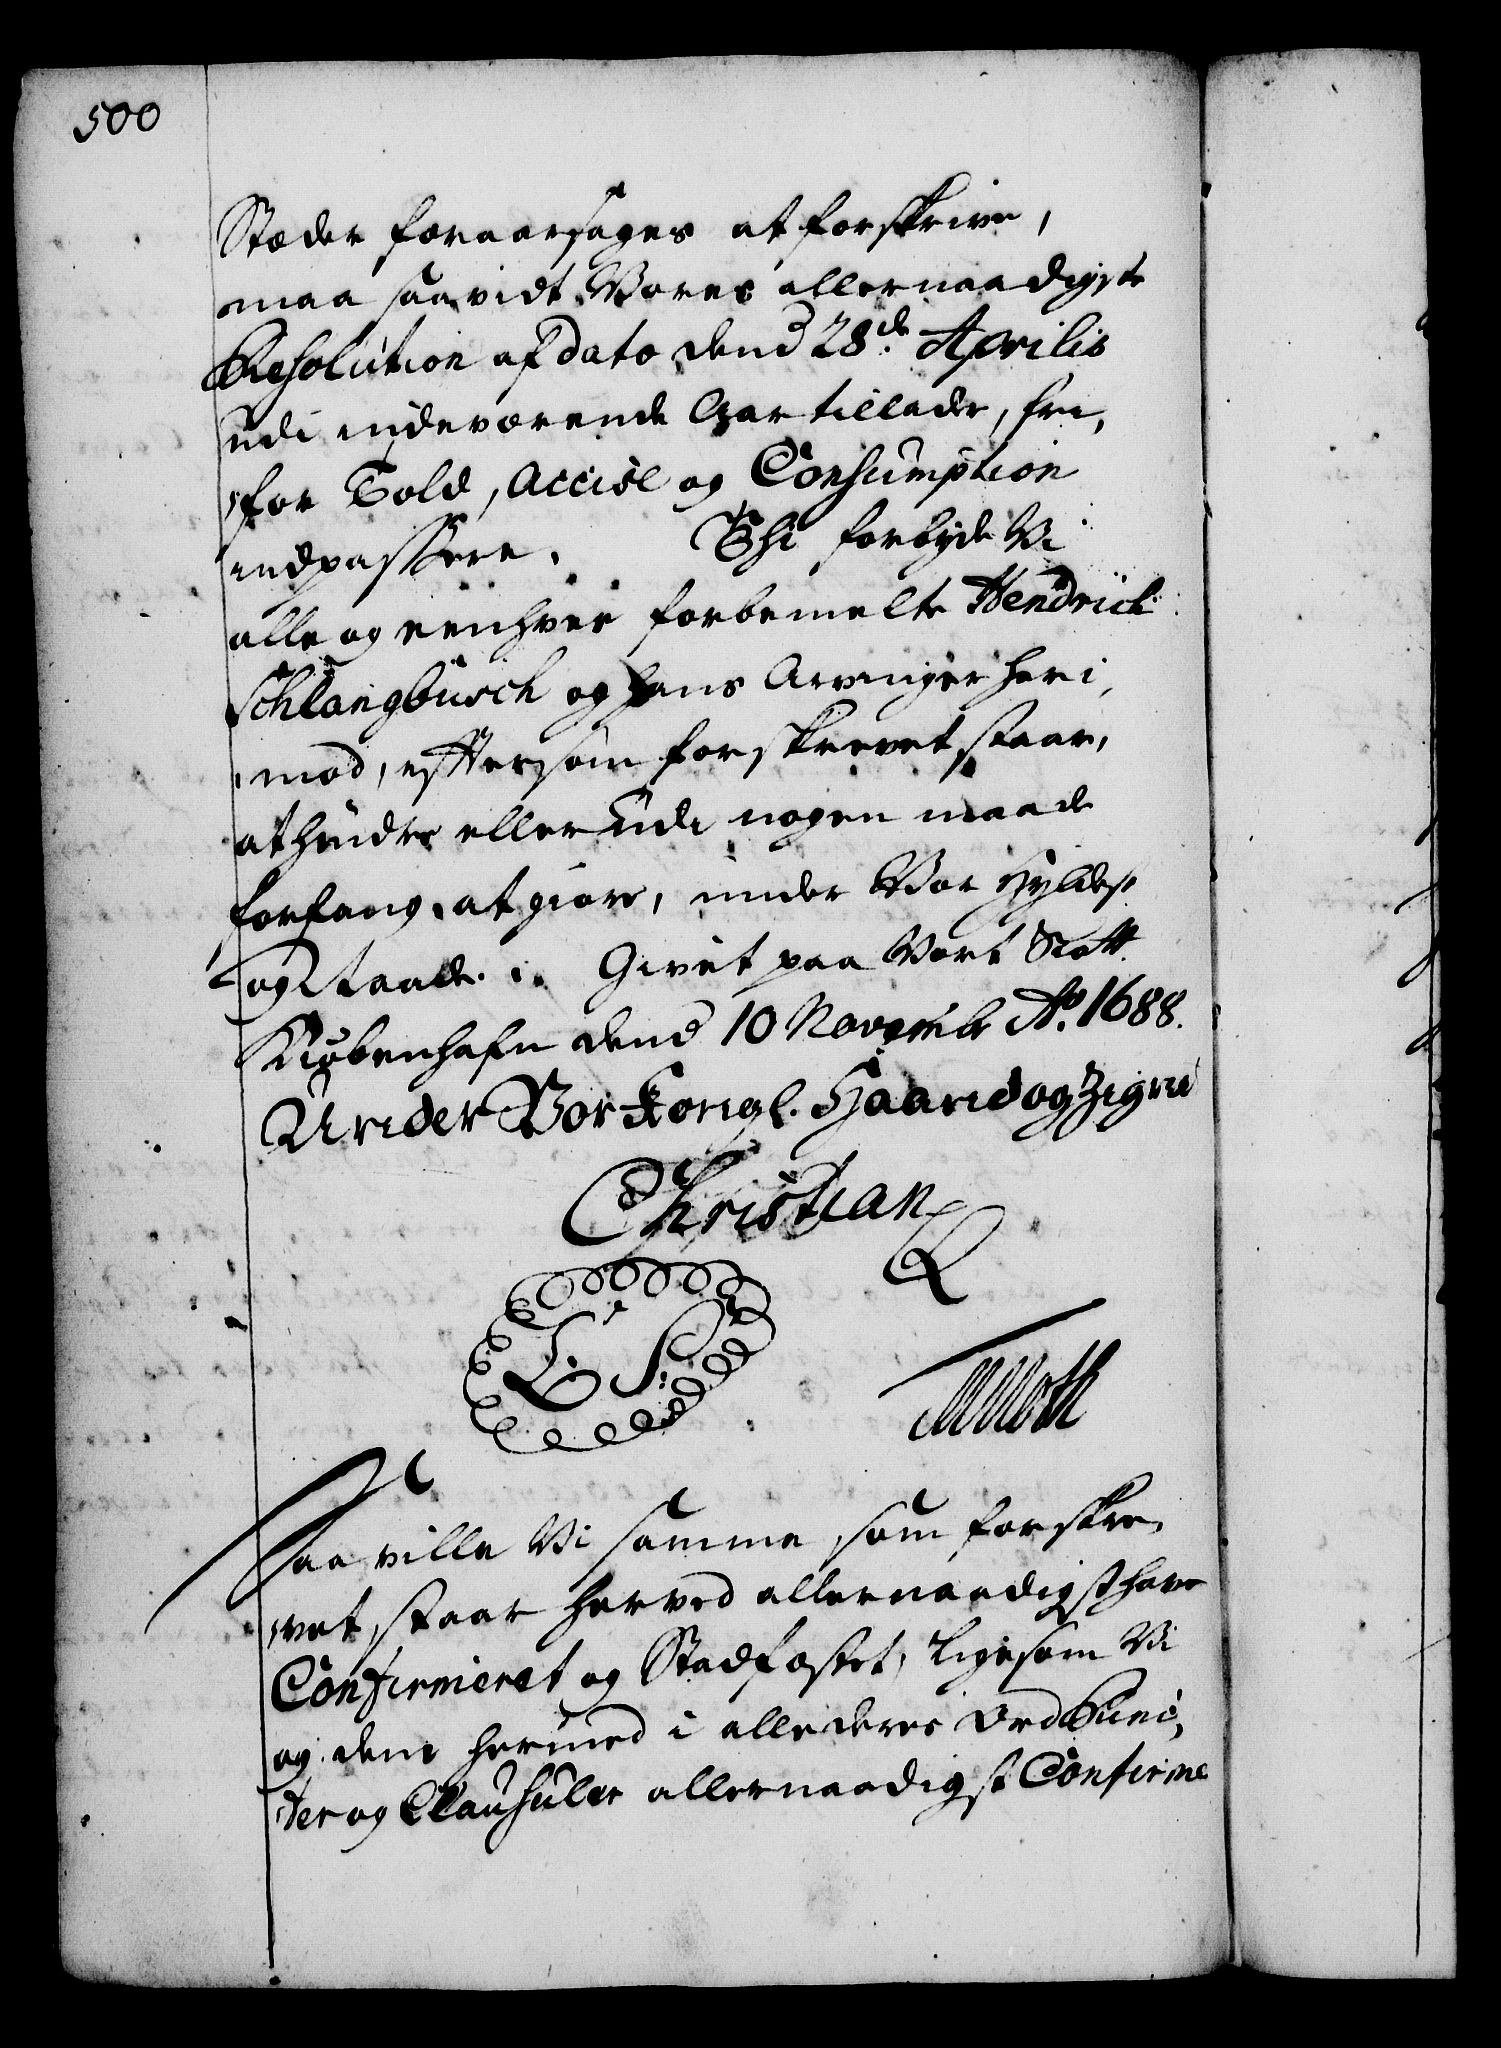 500
Stæder foraarsages at forskrive,
maa saavidt Vores allernaadigste
Resolution af dato dend 28de Aprilis
udi indeværende Aar tillader, fri
for Told, Accise og Consumption
indpassere. Thi forbyde Vi
alle og eenhver forbemelte Hendrich
Schlangbusch og hans Arvinger heri,
mod, eftersom forskrevet staar,
at hindre eller udi nogen maade
forfang at giøre, under Vor Hyldest
og Naade. Givet paa Vort Slott
Kiøbenhafn dend 10 Novembr Ao. 1688.
Under Vor Kongl. Haand og Zigne
Christian
L. S.
M Moth
Saa ville Vi samme som forskre,
vet staar herved allernaadigst have
Confirmeret og Stadfæstet, ligesom Vi
og dem hermed i alle deres Ord Punc,
ter og Clausuler allernaadigst Confirme